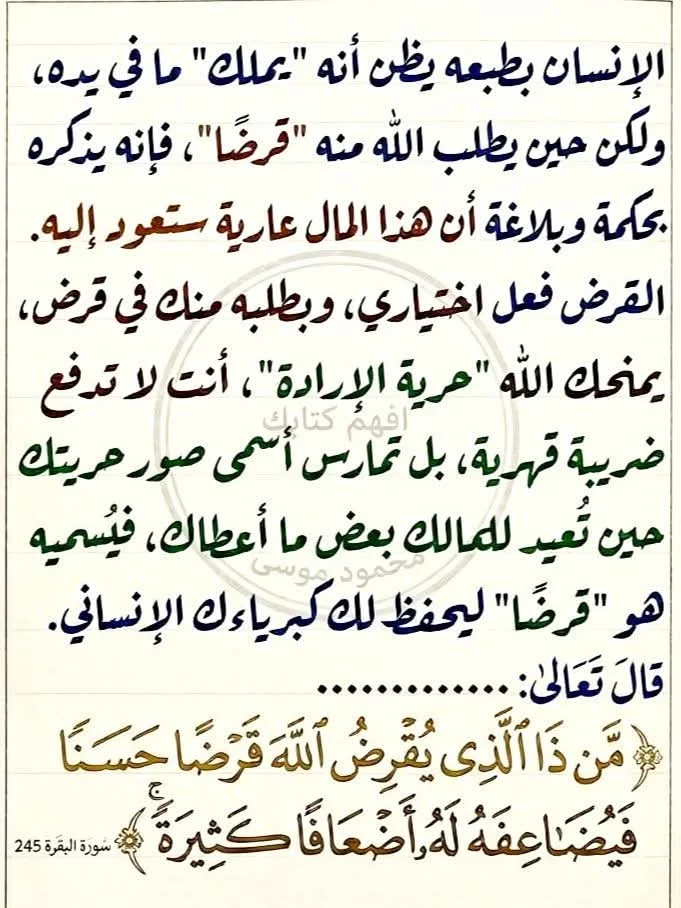 الإنسان بطبعه يظن أنه "يملك" ما في يده،
ولكن حين يطلب الله منه "قرضًا"، فإنه يذكره
بحكمة وبلاغة أن هذا المال عارية ستعود إليه.
القرض فعل اختياري، وبطلبه منك في قرض،
يمنحك الله "حرية الإرادة"، أنت لا تدفع
افهم كتابك
ضريبة قهرية، بل تمارس أسمى صور حريتك
حين تُعيد للمالك بعض ما أعطاك، فيُسميه
محمود موسى
هو "قرضًا" ليحفظ لك كبرياءك الإنساني.
قالَ تَعَالىٰ: .............
﴿مَّن ذَا ٱلَّذِى يُقْرِضُ ٱللَّهَ قَرْضًا حَسَنًا
فَيُضَـٰعِفَهُۥ لَهُۥٓ أَضْعَافًا كَثِيرَةً ۚ﴾ سُورَة البَقَرَة 245